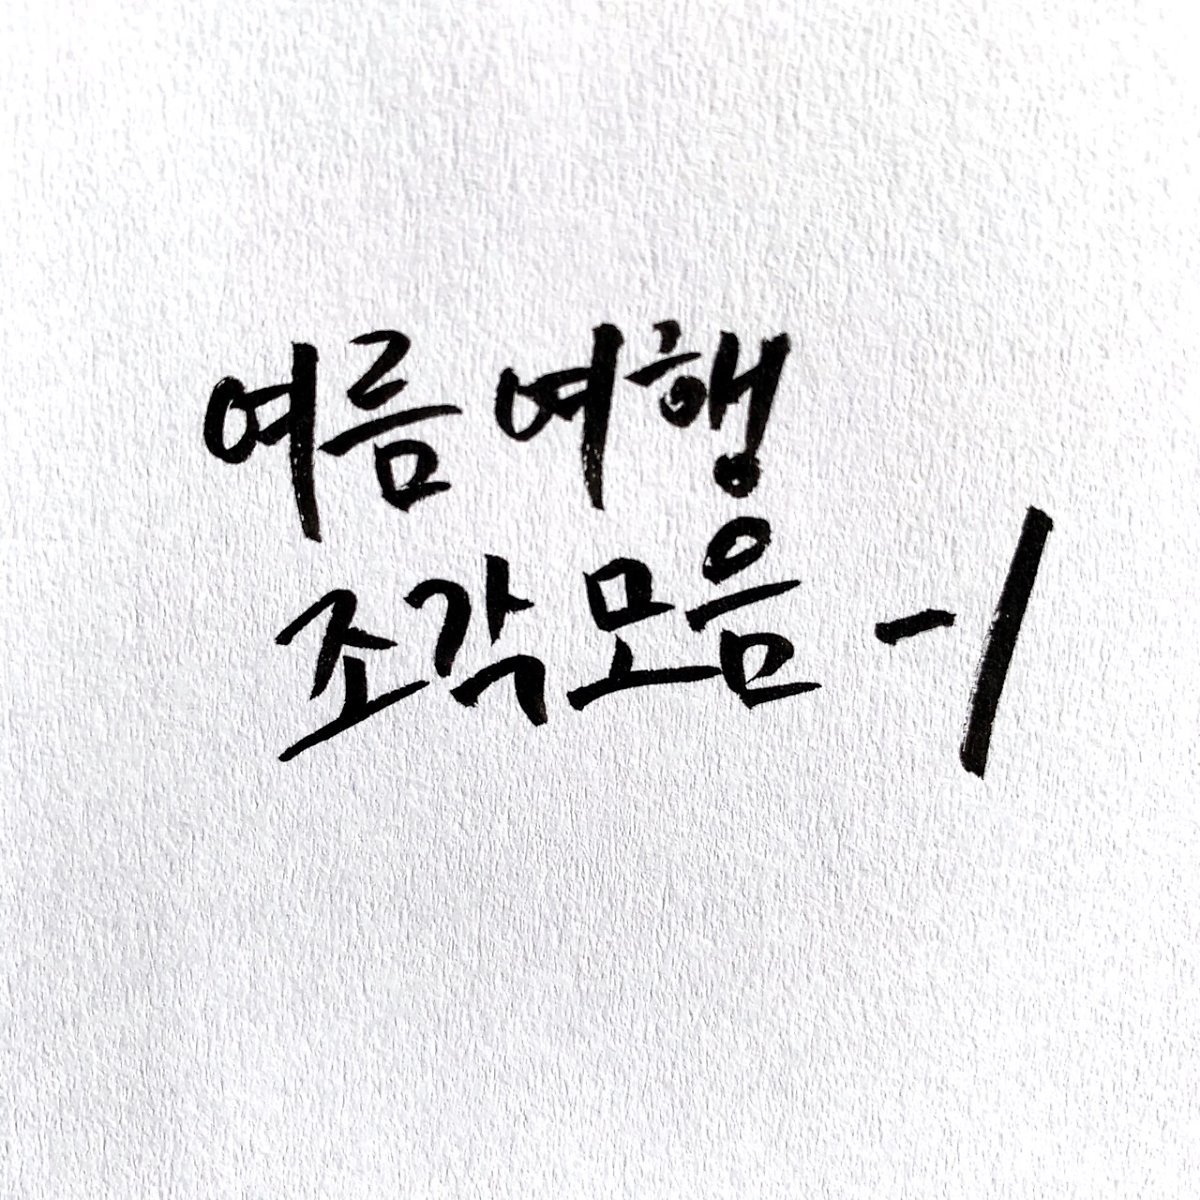 여름 여행
조각모음 -1